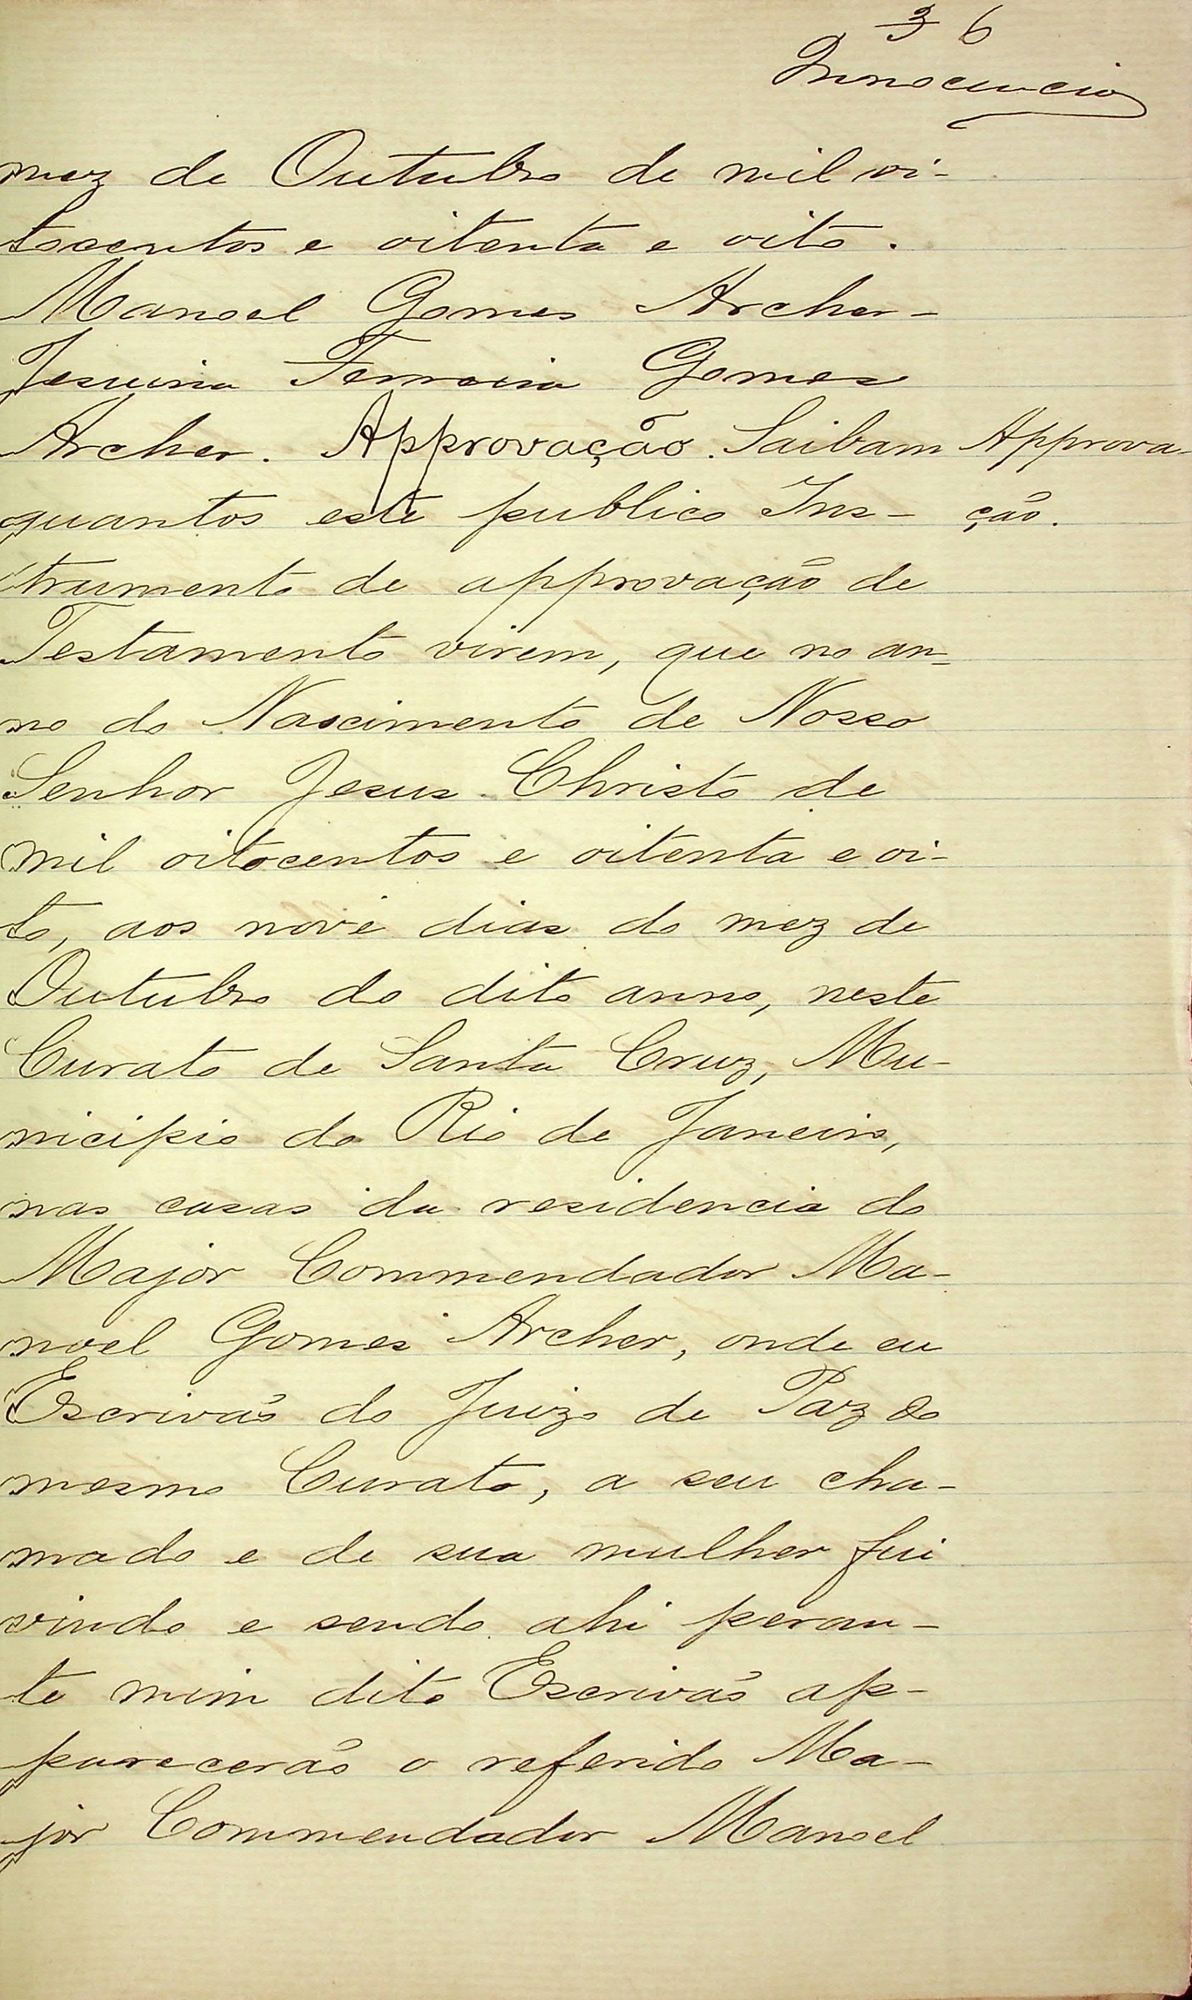 3 6
Innocencio
mez de Outubro de mil oi-
tocentos e oitenta e oito.
Manoel Gomes Archer-
Jesuina Ferreira Gomes
Archer. Approvação. Saibam
Approva-
quantos este publico Ins-
ção.
trumento de approvação de
Testamento virem, que no an-
no do Nascimento de Nosso
Senhor Jesus Christo de
mil oitocentos e oitenta e oi-
to, aos nove dias do mez de
Outubro do dito anno, neste
Curato de Santa Cruz, Mu-
nicipio do Rio de Janeiro,
nas casas da residencia do
Major Commendador Ma-
noel Gomes Archer, onde eu
Escrivão do Juizo de Paz do
mesmo Curato, a seu cha-
mado e de sua mulher fui
vindo e sendo ahi peran-
te mim dito Escrivão ap-
parecerão o referido Ma-
jor Commendador Manoel